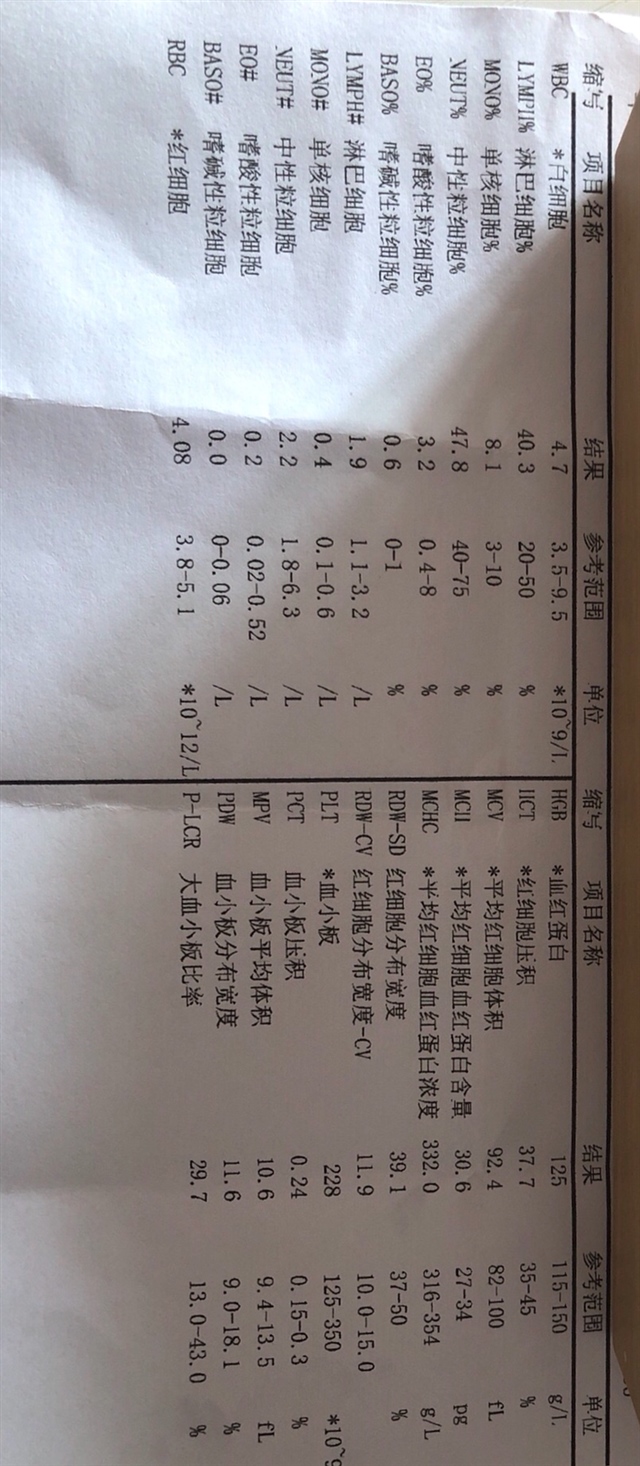 缩写 项目名称 结果 参考范围 单位 缩写 项目名称 结果 参考范围 单位
WBC *白细胞 4.7 3.5-9.5 *10~9/L HGB *血红蛋白 125 115-150 g/L
LYMPH% 淋巴细胞% 40.3 20-50 % HCT *红细胞压积 37.7 35-45 %
MONO% 单核细胞% 8.1 3-10 % MCV *平均红细胞体积 92.4 82-100 fL
NEUT% 中性粒细胞% 47.8 40-75 % MCH *平均红细胞血红蛋白含量 30.6 27-34 pg
EO% 嗜酸性粒细胞% 3.2 0.4-8 % MCHC *平均红细胞血红蛋白浓度 332.0 316-354 g/L
BASO% 嗜碱性粒细胞% 0.6 0-1 % RDW-SD 红细胞分布宽度 39.1 37-50 %
LYMPH# 淋巴细胞 1.9 1.1-3.2 /L RDW-CV 红细胞分布宽度-CV 11.9 10.0-15.0
MONO# 单核细胞 0.4 0.1-0.6 /L PLT *血小板 228 125-350 *10~9
NEUT# 中性粒细胞 2.2 1.8-6.3 /L PCT 血小板压积 0.24 0.15-0.3 %
EO# 嗜酸性粒细胞 0.2 0.02-0.52 /L MPV 血小板平均体积 10.6 9.4-13.5 fL
BASO# 嗜碱性粒细胞 0.0 0-0.06 /L PDW 血小板分布宽度 11.6 9.0-18.1 %
RBC *红细胞 4.08 3.8-5.1 *10~12/L P-LCR 大血小板比率 29.7 13.0-43.0 %